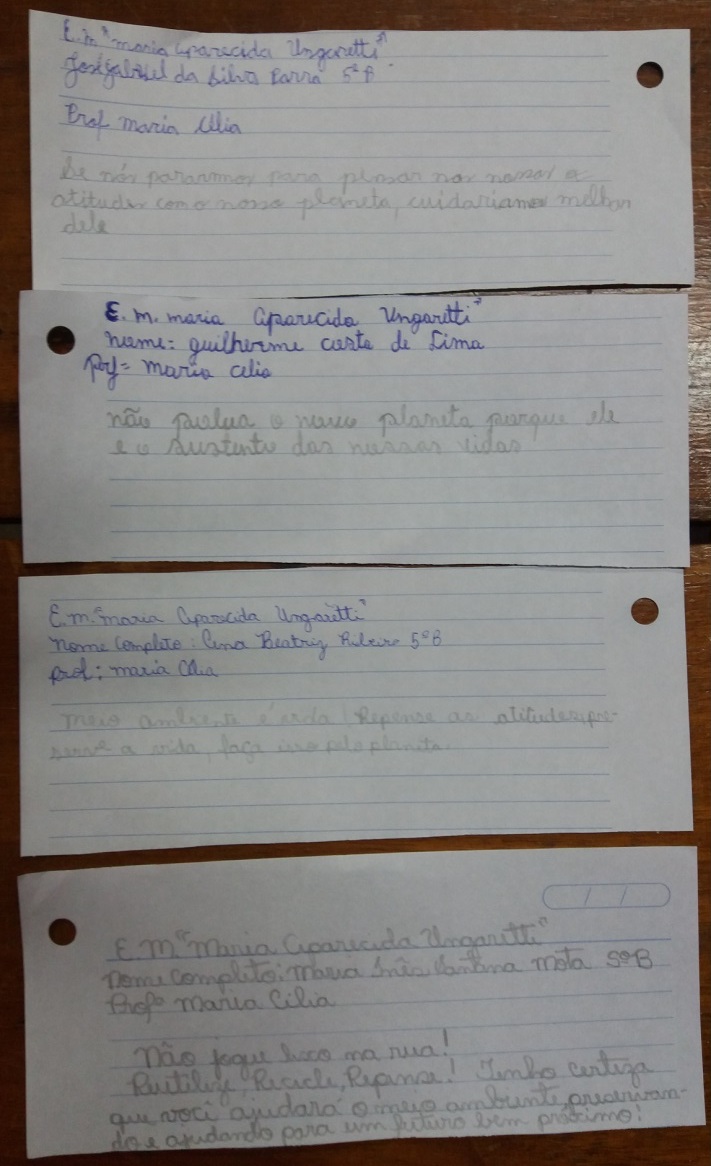 E.M "Maria Aparecida Ungaretti"
José Gabriel da Silva Parra 5ºB
Prof Maria Célia
Se nós pararmos para pensar nas nossas a
atitudes com o nosso planeta, cuidariamos melhor
dele
E. M. Maria Aparecida Ungaretti"
Nome: Guilherme Costa de Lima
Prof= Maria Celia
não polua o nosso planeta porque ele
e o sustento das nossas vidas
E.M. "Maria Aparecida Ungaretti"
Nome Completo: Ana Beatriz Ribeiro 5ºB
Prof: Maria Célia
Meio ambiente é vida! Repense as atitudes, pre-
serve a vida, faça isso pelo planeta.
E. M "Maria Aparecida Ungaretti"
Nome Completo: Maria Inês Santana Mota 5ºB
Profª Maria Célia
Não jogue lixo na rua!
Reutilize, Recicle, Repense! Tenho certeza
que você ajudará o meio ambiente, preservan-
do e ajudando para um futuro bem próximo!